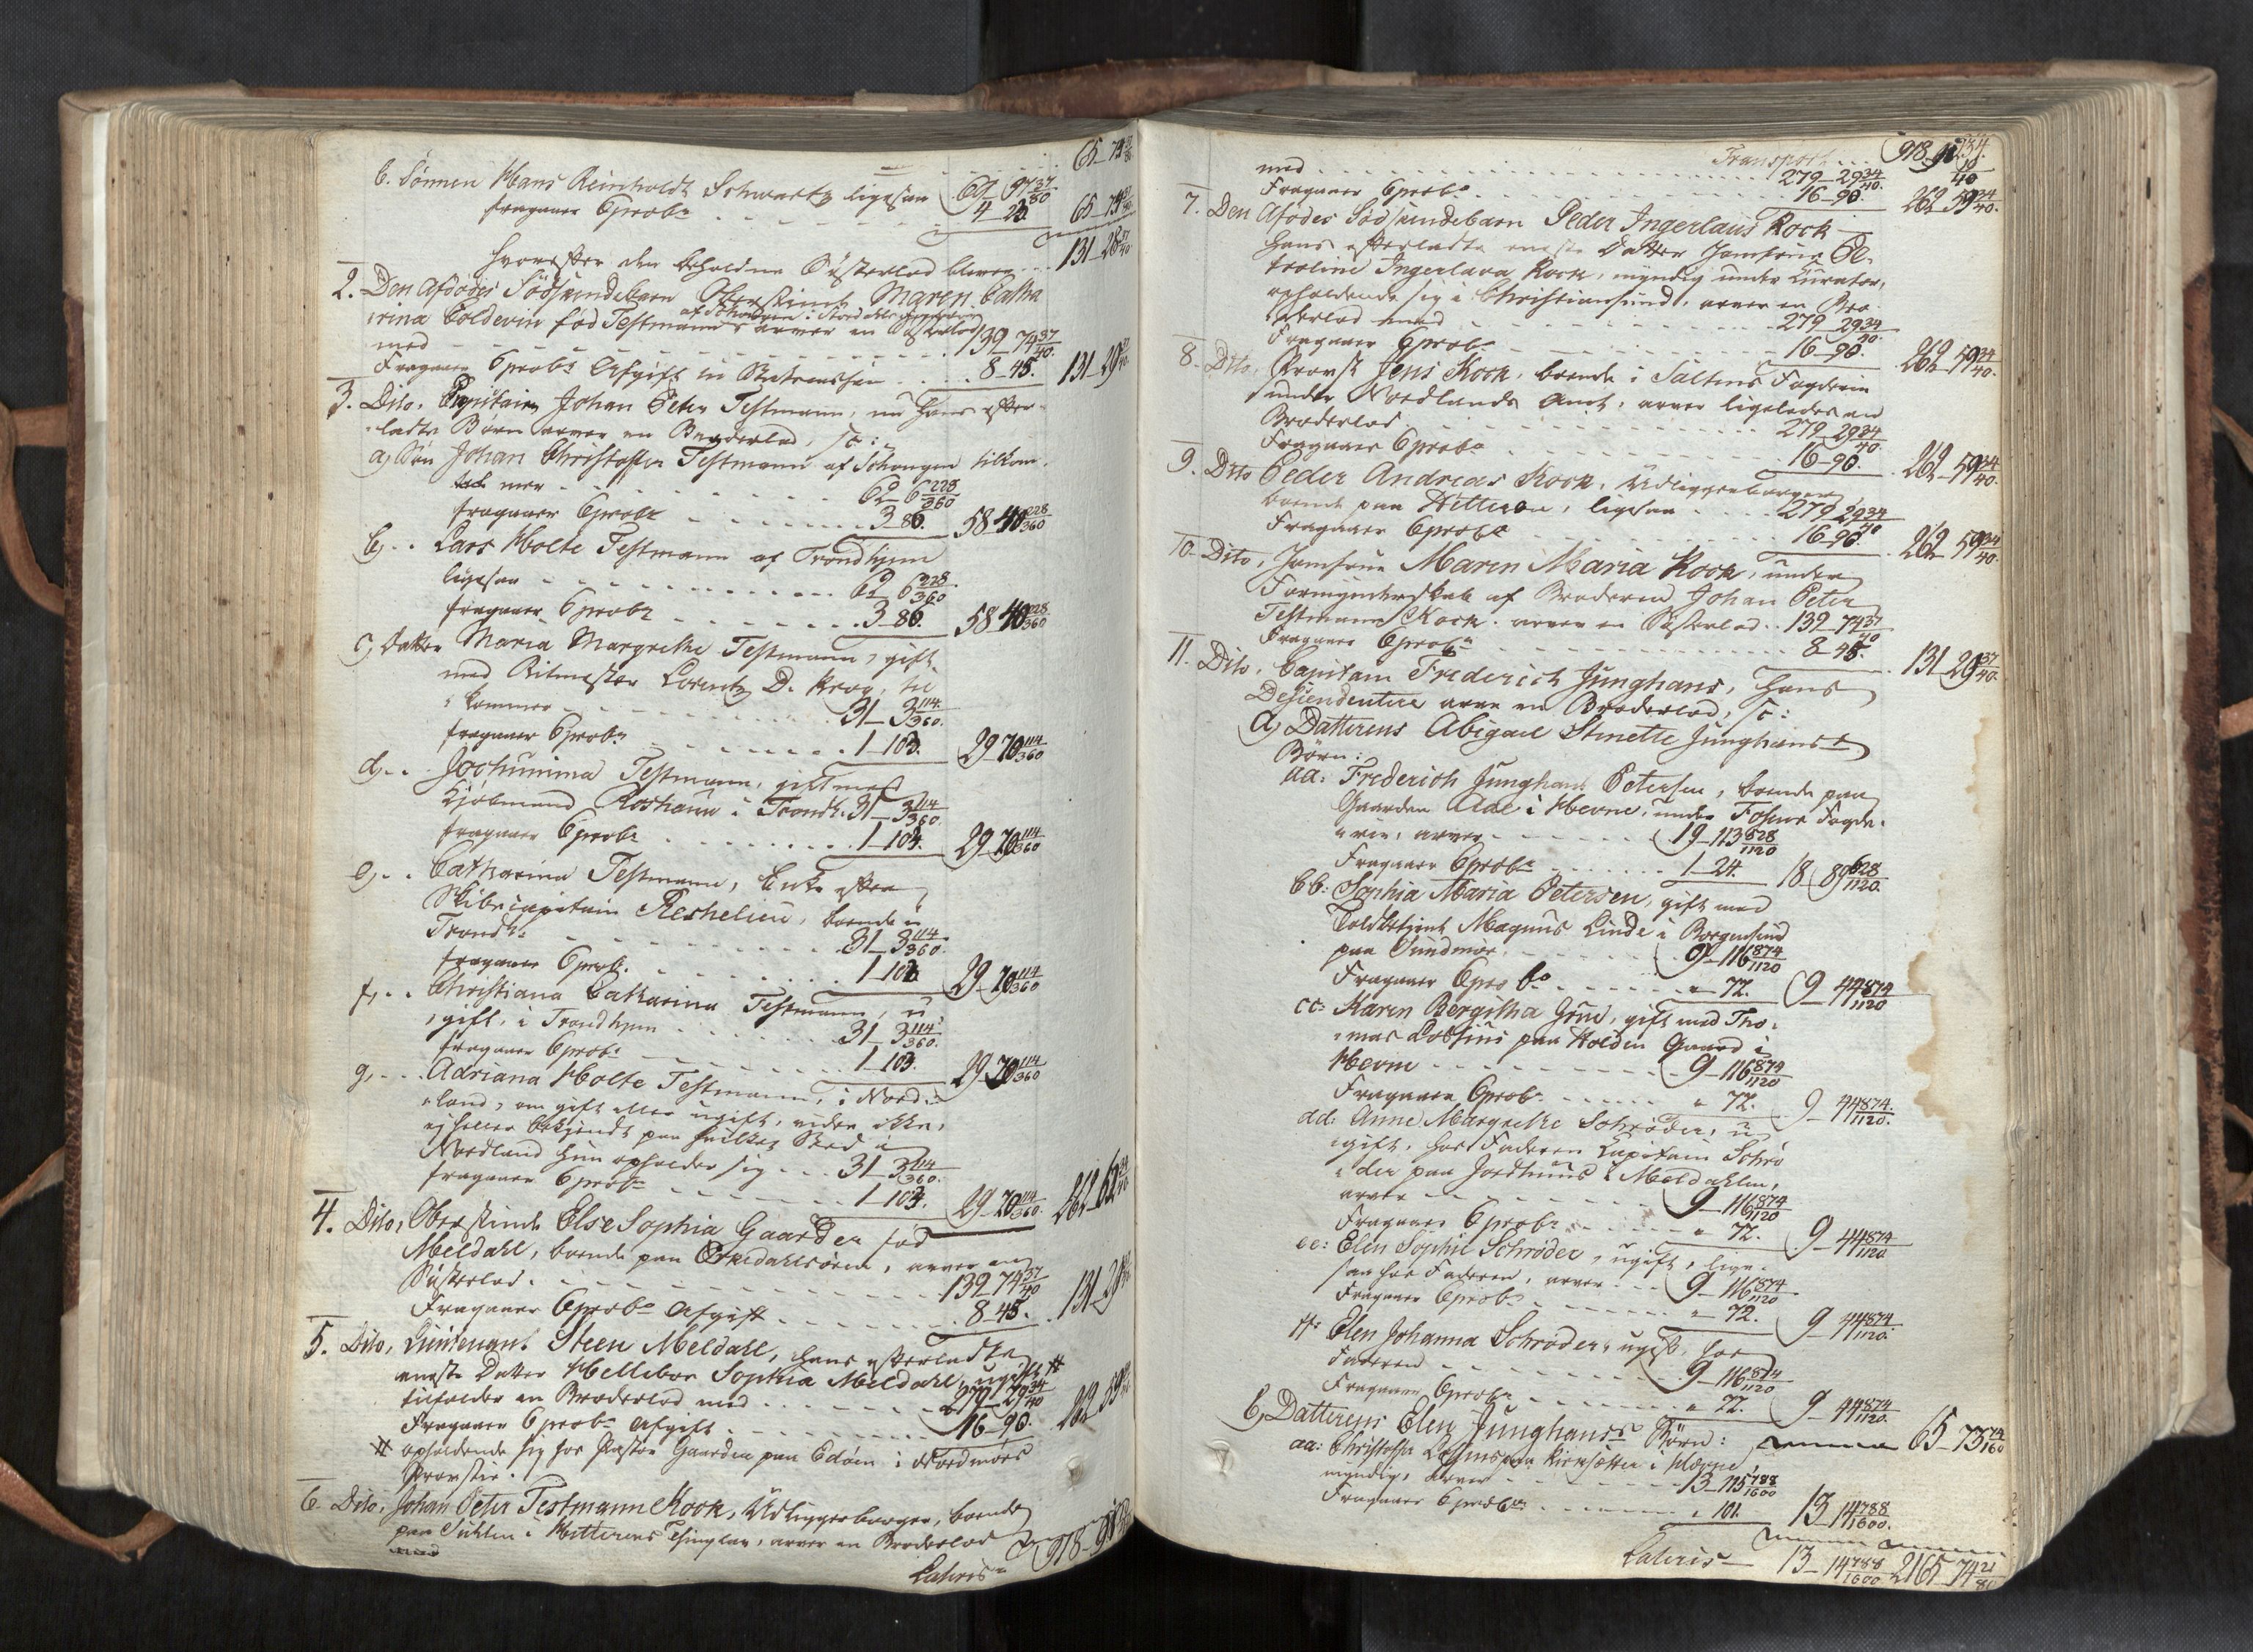 65-73
b. Sönnen Hans Reinholdt Schwartz ligesaa 69-97 37/80
fragaaer 6 proCt 4-24. 65-73
hvorefter den beholdne Søsterlod bliver 131-28 37/40
2. Den Afdødes Södskendebarn Oberstinde Maren Catha
rina Coldevin fød Testmann arver en Søsterlod
med 139-74 37/40.
Fragaaer 6 proCt Afgift til Statscassen 8-45. 131-29
3. Dito, Capitain Johan Peter Testmann, nu hans efter-
ladte Børn arver en Broderlod, sc:
a, Søn Johan Christopher Testmann af Schongen tilkom-
mer 62-6 228/360
fragaaer 6 proCt 3-86. 58-40 228/360
b, .. Lars Holte Testmann af Trondhjem
ligesaa 62-6 228/360
fragaaer 6 proCt 3-86. 58-40 228/360
c, Datter Maria Margrethe Testmann, gift
med Ritmester Lorentz D. Krog, til
kommer 31-3 114/360.
fragaaer 6 proCt 1-103. 29-70 114/360
d, .. Jochumina Testmann, gift med
Kjøbmand Roshauw i Trondh. 31-3 114/360.
fragaaer 6 proCt 1-103. 29-70 114/360
e, .. Catharina Testmann, Enke efter
Skibscapitain Reshelieu, boende i
Trondh: 31-3 114/360.
fragaaer 6 proCt. 1-103. 29-70 114/360
f, .. Christiana Catharina Testmann, u-
gift, i Trondhjem 31-3 114/360.
fragaaer 6 proCt 1-103. 29-70 114/360
g, .. Adriana Holte Testmann, i Nord-
land, om gift eller ugift, vides ikke,
ej heller bekjendt paa hvilket Sted i
Nordland hun opholder sig 31-3 114/360.
fragaaer 6 proCt 1-103. 29-70 114/360. 262-62
4. Dito, Oberstinde Else Sophia Gaarder fød
Meldahl, boende paa Orkedahlsøren, arver en
Søsterlod 139-74 37/40
Fragaaer 6 proCt Afgift 8-45. 131-29
5. Dito, Lieutenant Steen Meldahl, hans efterladte
eneste Datter Hellebor Sophia Meldahl, ugift #
tilfalder en Broderlod med 279-29 34/40
Fragaaer 6 proCt Afgift 16-90. 262-59
# opholdende sig hos Pastor Gaarder paa Edøen i Nordmørs
Provstie.
6. Dito, Johan Peter Testmann Kock, Udliggerborger, boende
paa Suhlen i Hitterens Thinglav, arver en Broderlod
Lateris 918-90
Transport 918-90
med 279-29 34/40.
Fragaaer 6 proCt 16-90. 262-59 34/40.
7. Den Afdødes Södskendebarn Peder Ingerlaus Kock
hans efterladte eneste Datter Jomfrue Pe-
troline Ingerlava Kock, myndig under Curator,
opholdende sig i Christiansund, arver en Bro-
derlod med 279-29 34/40.
Fragaaer 6 proCt 16-90. 262-59 34/40.
8. Dito, Provst Jens Kock, boende i Saltens Fogderie
under Nordlands Amt, arver ligeledes en
Broderlod 279-29 34/40.
Fragaaer 6 proCt 16-90. 262-59 34/40.
9. Dito Peder Andreas Kock, Udliggerborger,
boende paa Hitteren, ligesaa 279-29 34/40
Fragaaer 6 proCt 16-90. 262-59 34/40.
10. Dito, Jomfrue Maren Maria Kock, under
Formynderskab af Broderen Johan Peter
Testmann Kock, arver en Søsterlod 139-74 37/40
Fragaaer 6 proCt 8-45. 131-29 37/40.
11. Dito, Capitain Frederich Junghans, hans
Descendenter arver en Broderlod, sc:
a, Datterens Abigael Stinette Junghans's
Børn:
aa: Frederich Junghans Petersen, boende paa
Gaarden Aae i Hevne, under Fosens Fogde-
rie, arver 19-113 628/1120
Fragaaer 6 proCt 1-24. 18-89 628/1120.
bb: Sophia Maria Petersen, gift med
Toldbetjent Magnus Linde i Borgensund
paa Sundmør 9-116 874/1120
Fragaaer 6 proCt " 72. 9-44 874/1120
cc: Karen Bergitha Grue, gift med Tho-
mas Lossius paa Holden Gaard i
Hevne 9-116 874/1120
Fragaaer 6 proCt " 72. 9-44 874/1120.
dd: Anne Margrethe Schröder, u-
gift, hos Faderen Capitain Schrö-
der paa Jordhuus i Meldahlen,
arver 9-116 874/1120
Fragaaer 6 proCt " 72. 9-44 874/1120
ee: Elen Sophie Schrøder, ugift, lige-
saa hos Faderen, arver 9-116 874/1120
Fragaaer 6 proCt " 72. 9-44 874/1120.
ff: Elen Johanna Schrøder, ugift, hos
Faderen 9-116 874/1120
Fragaaer 6 proCt " 72. 9-44 874/1120.
b, Datterens Elen Junghans's Børn: 65-73
aa: Christopher
myndig, arver 13-115 788/1600
Fragaaer 6 proCt " 101. 13-14 788/1600.
Lateris 13-14 788/1600 2165-74 21/80